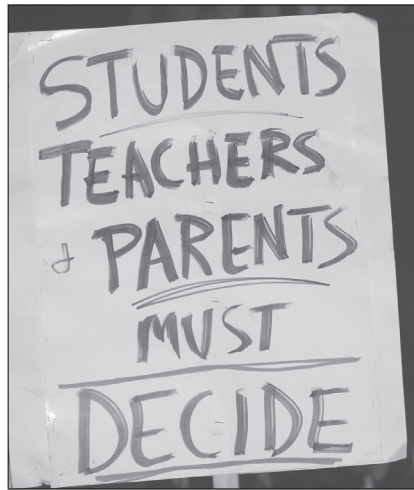 STUDENTS
TEACHERS
& PARENTS
MUST
DECIDE